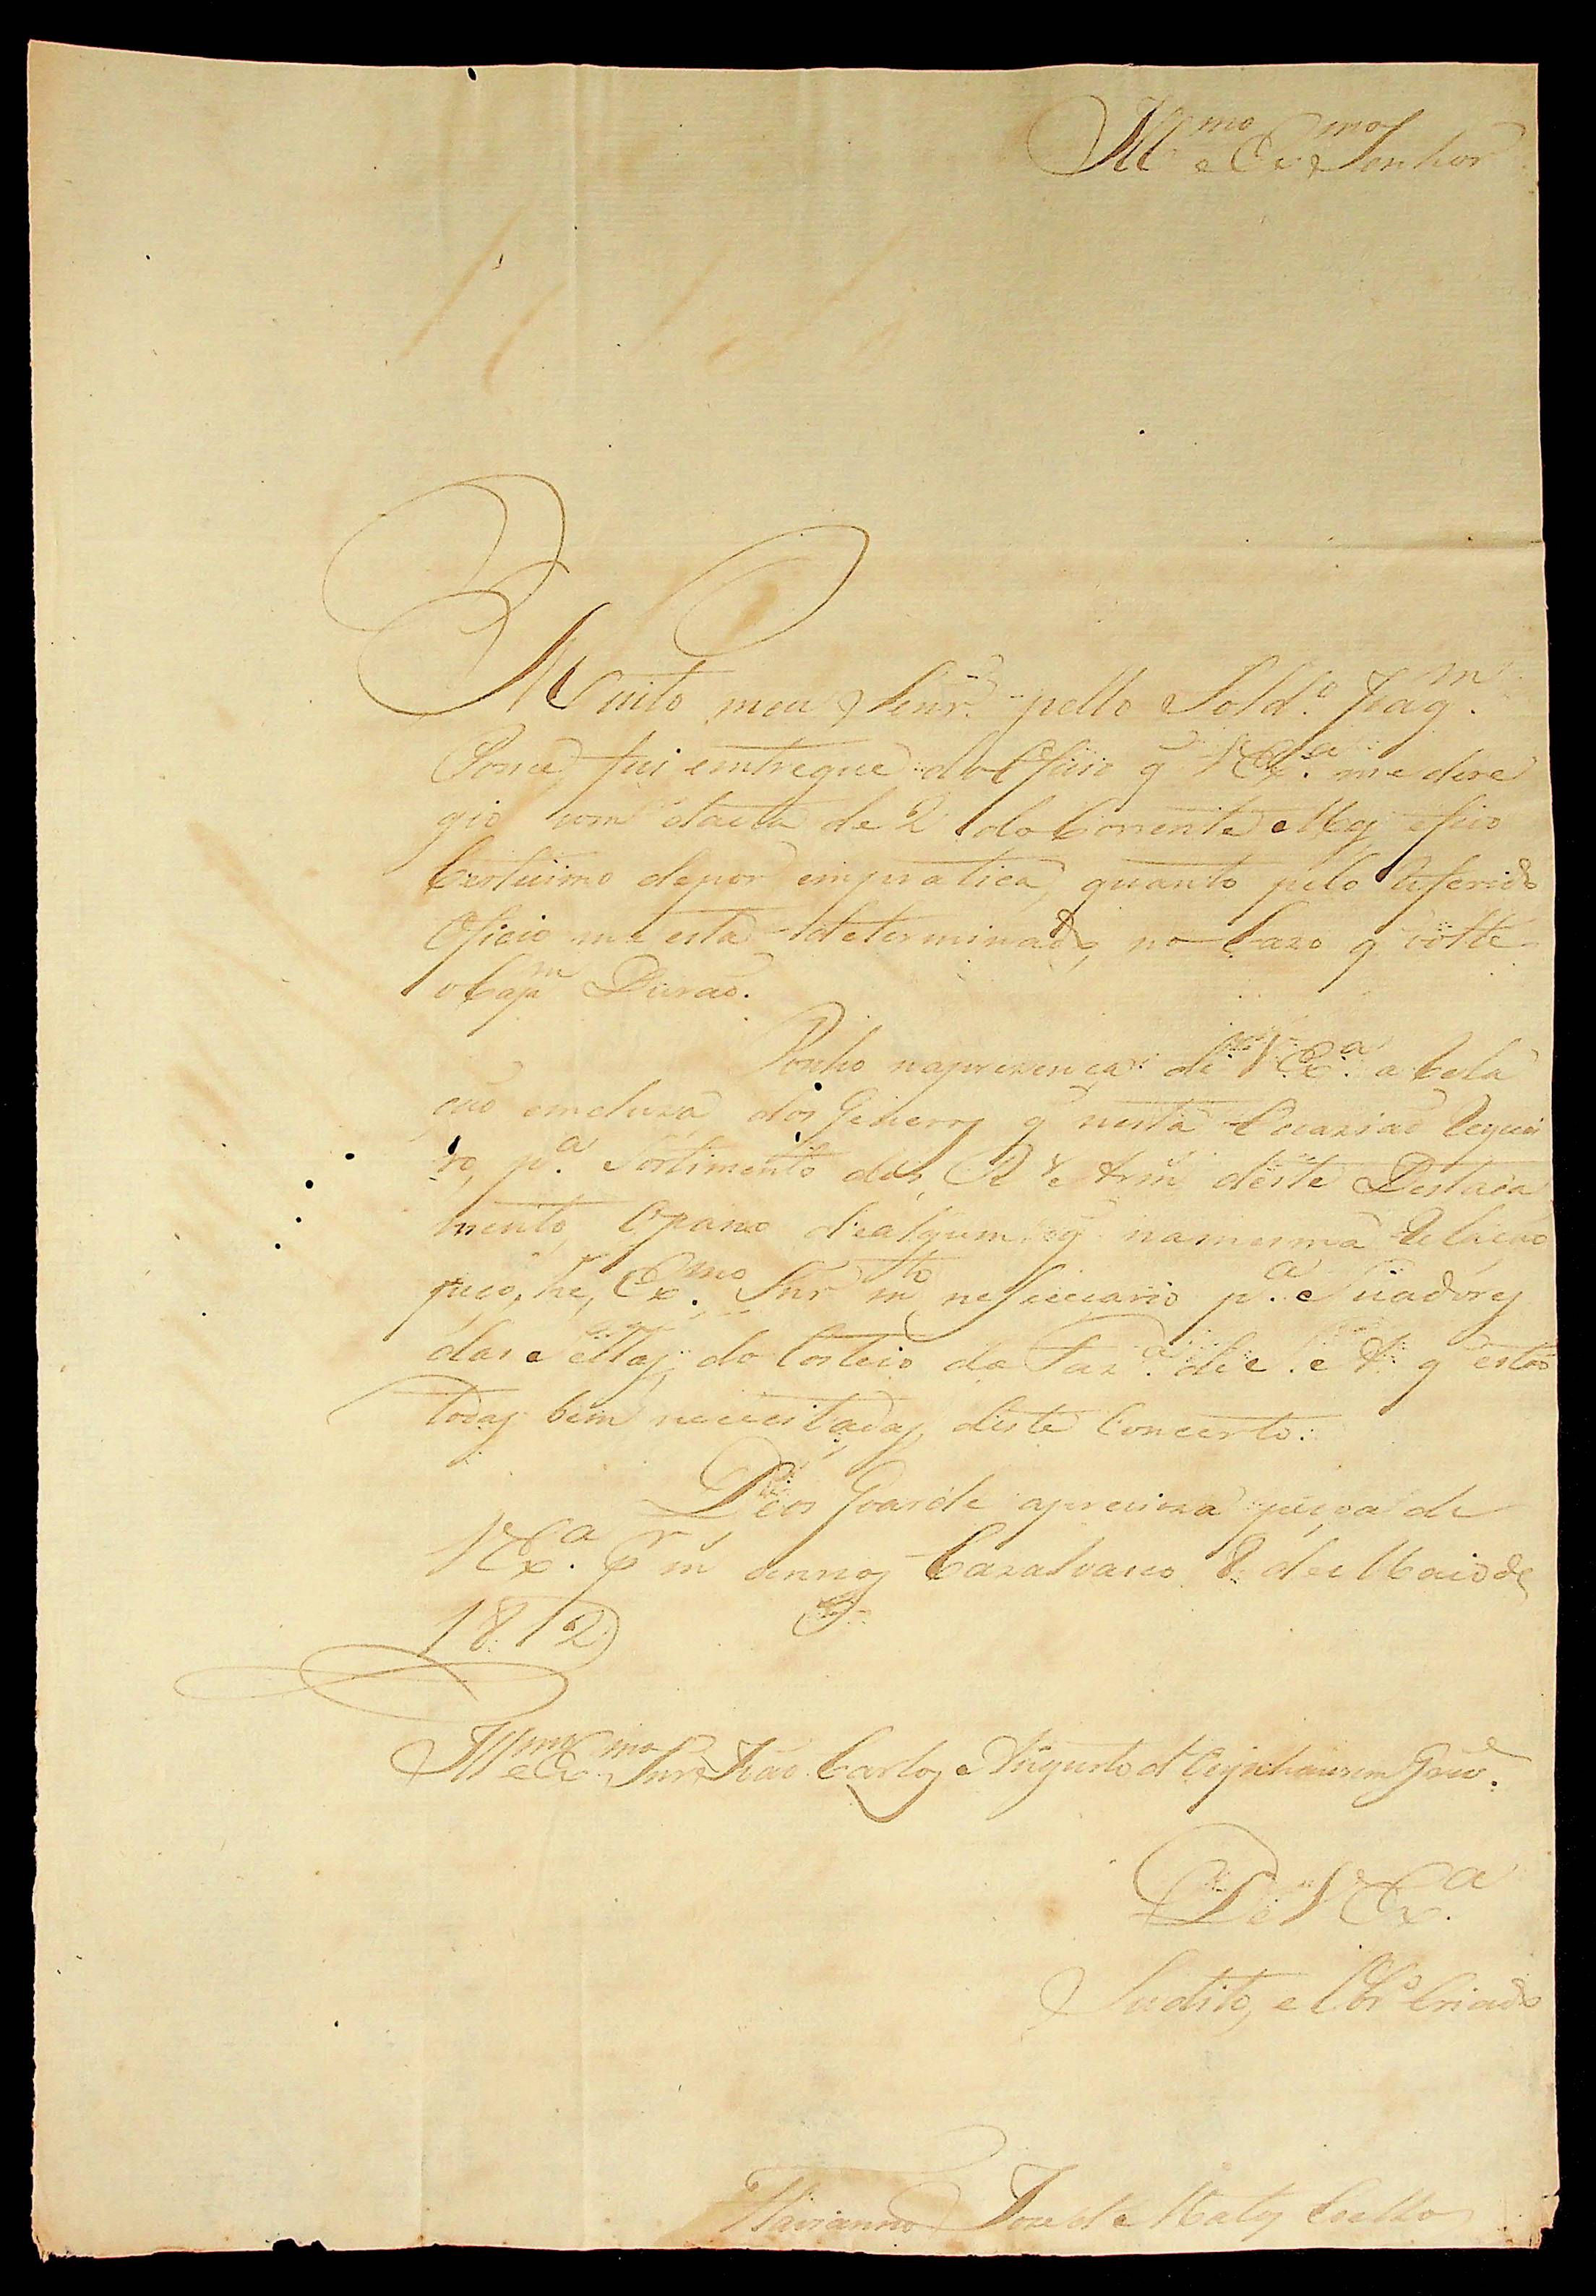 Ill.mo e Ex.mo Senhor
Muito meu Senr. pello Sold.o Joaq.m
Ponce, fui entregue do Oficio q̃ V Ex.a me dere
gio com dacta de 2 do Corrente Mes, e fico
Certissimo de por em pratica, quanto pelo referido
Oficio me está determinado, no cazo q̃ volte
o Cap.m Durão.
Ponho na prezença de V Ex.a a Rela
ção emcluza dos Generos q̃ nesta Ocazião requei
ro, p.a Sortimento dos R.s e Arm. deste Destaca
mento, O pano de algum q̃ na mesma Relação
peço, he, Ex.mo Snr m.to nessecario p.a Suadores
das Sellas, do Costeio da Faz.a de S. A. R. q̃ estão
todas bem necessitadas deste Concerto.
Deos Goarde a precioza pessoa de
V Ex.a p.r m. annos Cazalvasco 8 de Maio de
1812
Ill.mo e Ex.mo Snr. João Carlos Augusto d' Oeynhausem Grev.
De V Ex.a
Sudito, e Obr.o Criado
Flavianno Joze de Matos Coelho